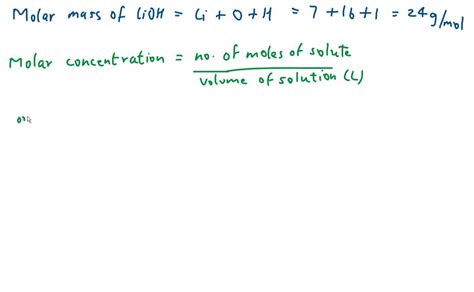 Molar mass of LiOH = Li + O + H = 7 + 16 + 1 = 24 g/mol
Molar concentration = no. of moles of solute
volume of solution (L)